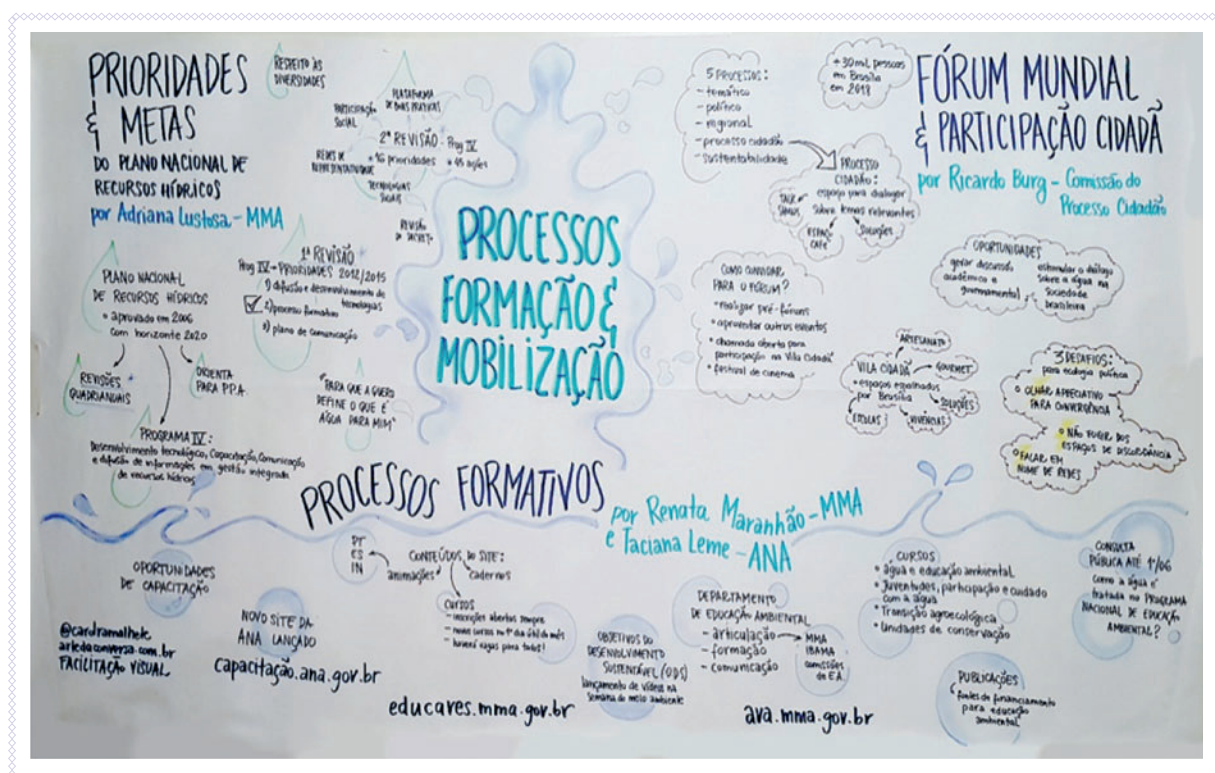 PRIORIDADES
& METAS
DO PLANO NACIONAL DE
RECURSOS HÍDRICOS
por Adriana Lustosa - MMA
RESPEITO ÀS
DIVERSIDADES
PLATAFORMA
DE BOAS PRÁTICAS
PARTICIPAÇÃO
SOCIAL
2ª REVISÃO - Prog IV
+ 16 prioridades + 45 ações
REDES DE
REPRESENTATIVIDADE
TECNOLOGIAS
SOCIAIS
REVISÃO
1ª REVISÃO
Prog IV → PRIORIDADES 2012/2015
1) difusão e desenvolvimento de
tecnologias
2) processo formativo
3) plano de comunicação
PLANO NACIONAL
DE RECURSOS HÍDRICOS
• aprovado em 2006
com horizonte 2020
REVISÕES
QUADRIANUAIS
ORIENTA
PARA P.P.A.
PROGRAMA IV:
Desenvolvimento tecnológico, Capacitação, Comunicação
e difusão de informações em gestão integrada
de recursos hídricos
"PARA QUE A QUERO
DEFINE O QUE É
ÁGUA PARA MIM"
PROCESSOS
FORMAÇÃO &
MOBILIZAÇÃO
5 PROCESSOS:
- temático
- político
- regional
- processo cidadão
- sustentabilidade
+30 mil pessoas
em Brasília
em 2018
FÓRUM MUNDIAL
& PARTICIPAÇÃO CIDADÃ
por Ricardo Burg - Comissão do
Processo Cidadão
PROCESSO
CIDADÃO:
espaço para dialogar
sobre temas relevantes
TALK
SHOWS
ESPAÇO
CAFÉ
SOLUÇÕES
OPORTUNIDADES
gerar discussão
acadêmica e
governamental
estimular o diálogo
sobre a água na
sociedade
brasileira
COMO CONVIDAR
PARA O FÓRUM?
• realizar pré-fóruns
• aproveitar outros eventos
• chamada aberta para
participação na Vila Cidadã
• festival de cinema
VILA CIDADÃ
• espaços espalhados
por Brasília
ARTESANATO
GOURMET
SOLUÇÕES
VIVÊNCIAS
ESCOLAS
3 DESAFIOS:
para ecologia política
○ OLHAR APRECIATIVO
PARA CONVERGÊNCIA
○ NÃO FUGIR DOS
ESPAÇOS DE DISCORDÂNCIA
○ FALAR EM
NOME DE REDES
PROCESSOS FORMATIVOS
por Renata Maranhão - MMA
e Taciana Leme - ANA
OPORTUNIDADES
DE CAPACITAÇÃO
arledaconversa.com.br
FACILITAÇÃO VISUAL
NOVO SITE DA
ANA LANÇADO
capacitação.ana.gov.br
PT
ES
IN
CONTEÚDOS DO SITE:
animações
cadernos
CURSOS
- inscrições abertas sempre
- novos cursos no 1º dia útil do mês
- haverá vagas para todos!
educares.mma.gov.br
OBJETIVOS DO
DESENVOLVIMENTO
SUSTENTÁVEL (ODS)
lançamento de vídeos na
semana do meio ambiente
DEPARTAMENTO
DE EDUCAÇÃO AMBIENTAL
- articulação
- formação
- comunicação
MMA
IBAMA
comissões
de E.A.
ava.mma.gov.br
CURSOS
• água e educação ambiental
• Juventudes, participação e cuidado
com a água
• Transição agroecológica
• Unidades de conservação
PUBLICAÇÕES
fontes de financiamento
para educação
ambiental
CONSULTA
PÚBLICA ATÉ 1º/06
como a água é
tratada no PROGRAMA
NACIONAL DE EDUCAÇÃO
AMBIENTAL?